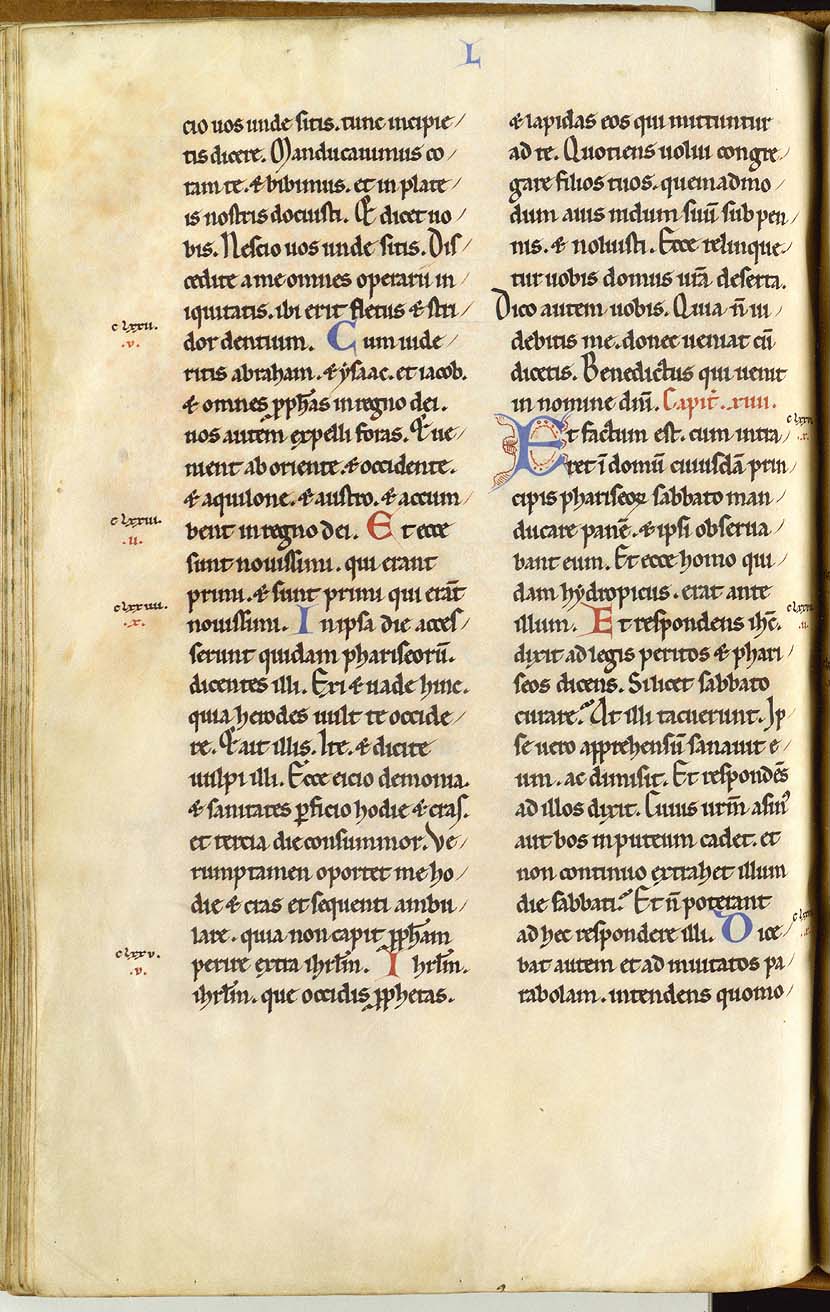 L
cio uos unde sitis. tunc incipie/
tis dicere. Manducauimus co/
ram te. & bibimus. et in plate/
is nostris docuisti. Et dicet uo/
bis. Nescio uos unde sitis. Dis/
cedite a me omnes operarii in/
iquitatis. ibi erit fletus & stri/
clxxii.
.v.
dor dentium. Cum uide/
ritis abraham. & ẏsaac. et iacob.
& omnes ꝓph̄as in regno dei.
uos autem expelli foras. Et ue/
nient ab oriente. & occidente.
& aquilone. & austro. & accum/
clxxiii.
.ii.
bent in regno dei. Et ecce
sunt nouissimi. qui erant
primi. & sunt primi qui erāt
clxxiiii.
.x.
nouissimi. In ipsa die acces/
serunt quidam phariseorū.
dicentes illi. Exi & uade hinc.
quia herodes uult te occide/
re. Et ait illis. Ite. & dicite
uulpi illi. Ecce eicio demonia.
& sanitates ꝑficio hodie & cras.
et tercia die consummor. Ve/
rumptamen oportet me ho/
die & cras et sequenti ambu/
lare. quia non capit ꝓph̄am
clxxv.
.v.
perire extra ihrl̄m. Ihrl̄m.
ihrl̄m. que occidis ꝓphetas.
& lapidas eos qui mittuntur
ad te. Quotiens uolui congre/
gare filios tuos. quemadmo/
dum auis nidum suū sub pen/
nis. & noluisti. Ecce relinque/
tur uobis domus ur̄a deserta.
Dico autem uobis. Quia n̄ ui/
debitis me. donec ueniat cū
dicetis. Benedictus qui uenit
in nomine dn̄i. Capit̄. xiiii.
Et factum est. cum intra/
ret ī domū cuiusdā prin/
cipis phariseoꝝ sabbato man/
ducare panē. & ipsi obserua/
bant eum. Et ecce homo qui/
dam hẏdropicus. erat ante
illum. Et respondens ih̄c.
dixit ad legis peritos & phari/
seos dicens. Si licet sabbato
curare? At illi tacuerunt. Ip/
se uero apprehensū sanauit e/
um. ac dimisit. Et respondēs
ad illos dixit. Cuius ur̄m asinꝰ
aut bos in puteum cadet. et
non continuo extrahet illum
die sabbati? Et n̄ poterant
ad hec respondere illi. Dice/
bat autem et ad inuitatos pa/
rabolam. intendens quomo/